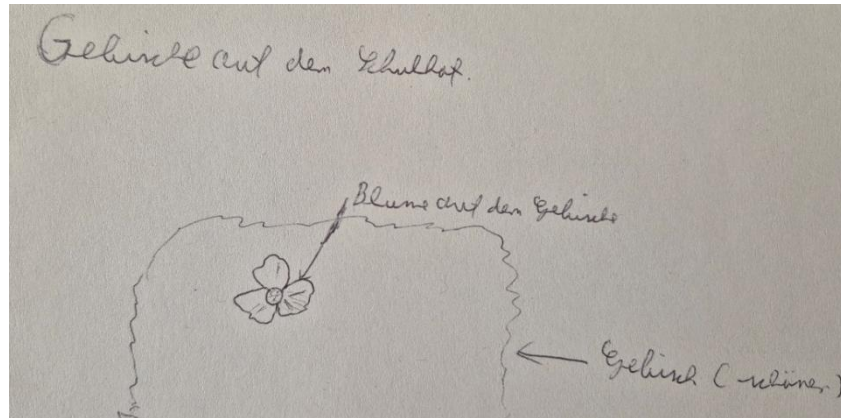 Gebische auf dem Schulhof.
Blume auf dem Gebische
Gebisch (schöner)